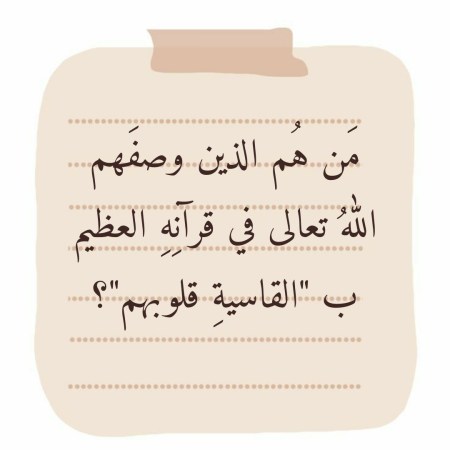 مَن هُم الذين وصفَهم
اللهُ تعالى في قرآنِهِ العظيم
ب "القاسيةِ قلوبهم"؟